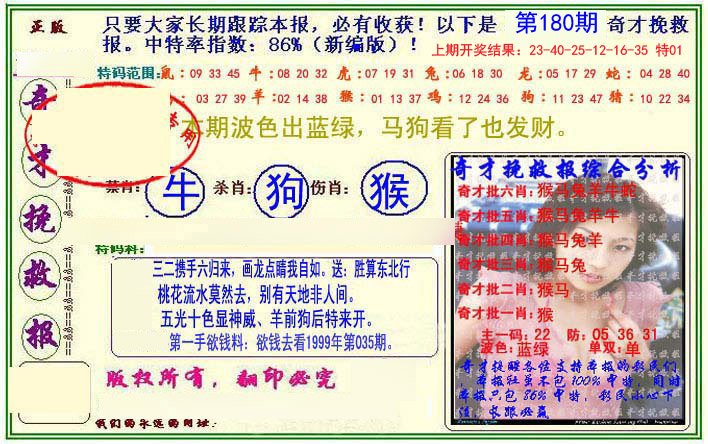 正版
只要大家长期跟踪本报，必有收获！以下是 第180期 奇才挽救
报。中特率指数：86%（新编版）！ 上期开奖结果：23-40-25-12-16-35 特01
特码范围: 鼠：09 33 45 牛：08 20 32 虎：07 19 31 兔：06 18 30 龙：05 17 29 蛇：04 28 40
：03 27 39 羊：02 14 38 猴：01 13 37 鸡：12 24 36 狗：11 23 47 猪：10 22 34
本期波色出蓝绿，马狗看了也发财。
奇才挽救报
禁肖： 牛 杀肖： 狗 伤肖： 猴
特码料：
三二携手六归来，画龙点睛我自如。送：胜算东北行
桃花流水莫然去，别有天地非人间。
五光十色显神威、羊前狗后特来开。
第一手欲钱料：欲钱去看1999年第035期。
版权所有，翻印必究
我们的永远的网址：
奇才挽救报综合分析
奇才批六肖：猴马兔羊牛蛇
奇才批五肖：猴马兔羊牛
奇才批四肖：猴马兔羊
奇才批三肖：猴马兔
奇才批二肖：猴马
奇才批一肖：猴
主一码：22 防：05 36 31
波色：蓝绿 单双：单
奇才挽救各位支持本报的彩民们
，本报虽不包100%中特，但
本报只包86%中特，彩民小心下
注，长跟必赢